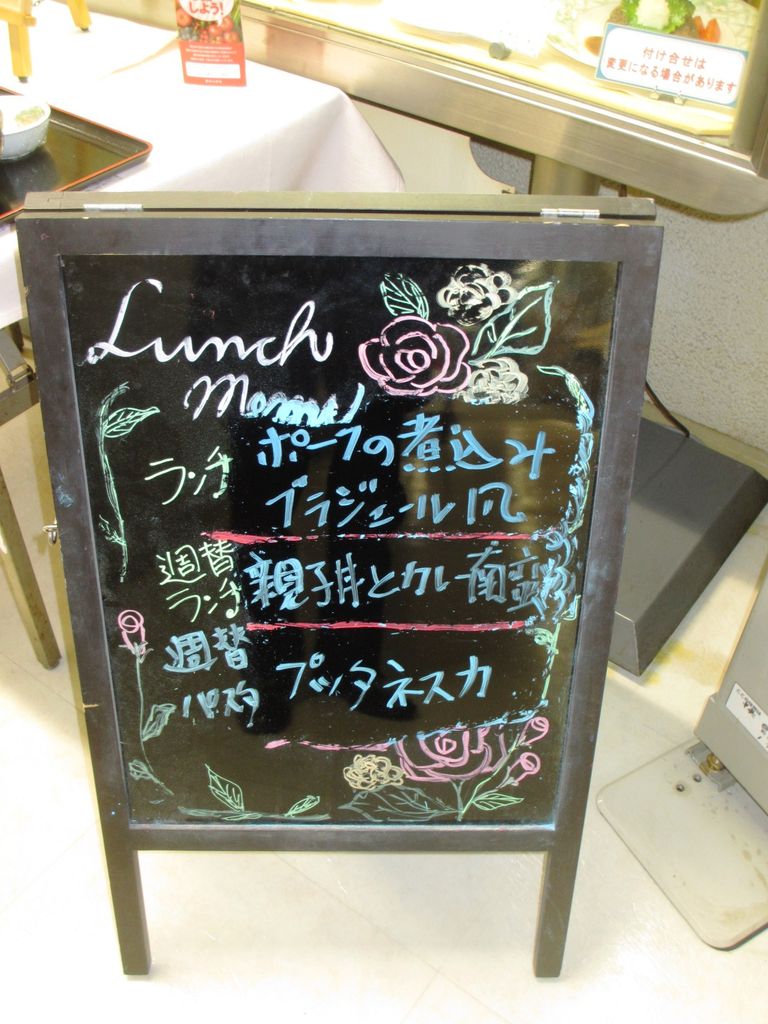 しよう!
付け合せは
変更になる場合があります
Lunch
Menu
ランチ
ポークの煮込み
ブラジェール風
週替
ランチ
親子丼とカレー南蛮
週替
パスタ
プッタネスカ